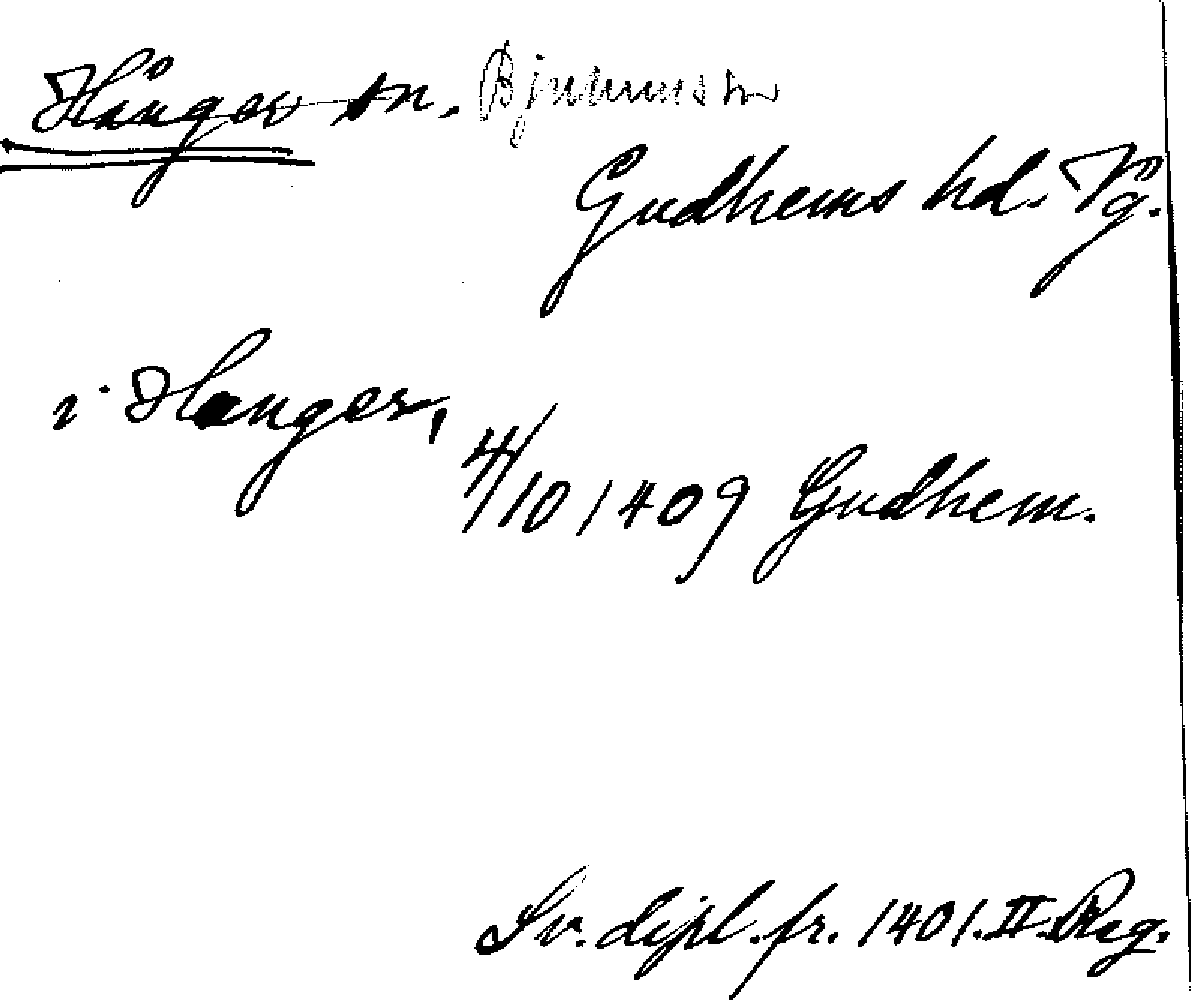 Hånger sn. Bjurums sn
Gudhems hd. Vg.
i Hanger,
4/10 1409 Gudhem.
Sv. dipl. fr. 1401. II. Reg.